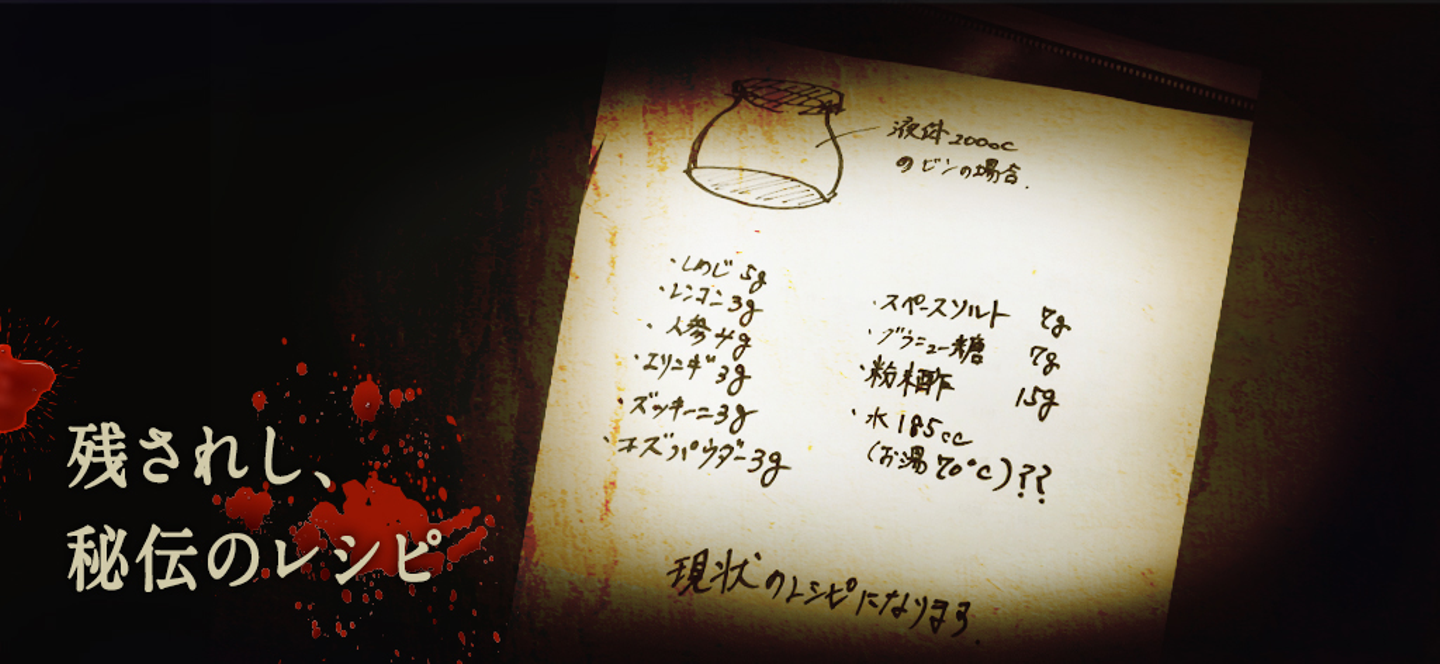 残されし、
秘伝のレシピ
液体200cc
のビンの場合.
・しめじ 5g
・レンコン 3g
・人参 4g
・エリンギ 3g
・ズッキーニ 3g
・ユズパウダー 3g
・スペースソルト 7g
・グラニュー糖 7g
・粉末酢 15g
・水 185cc
(お湯 70℃)??
現状のレシピになります.